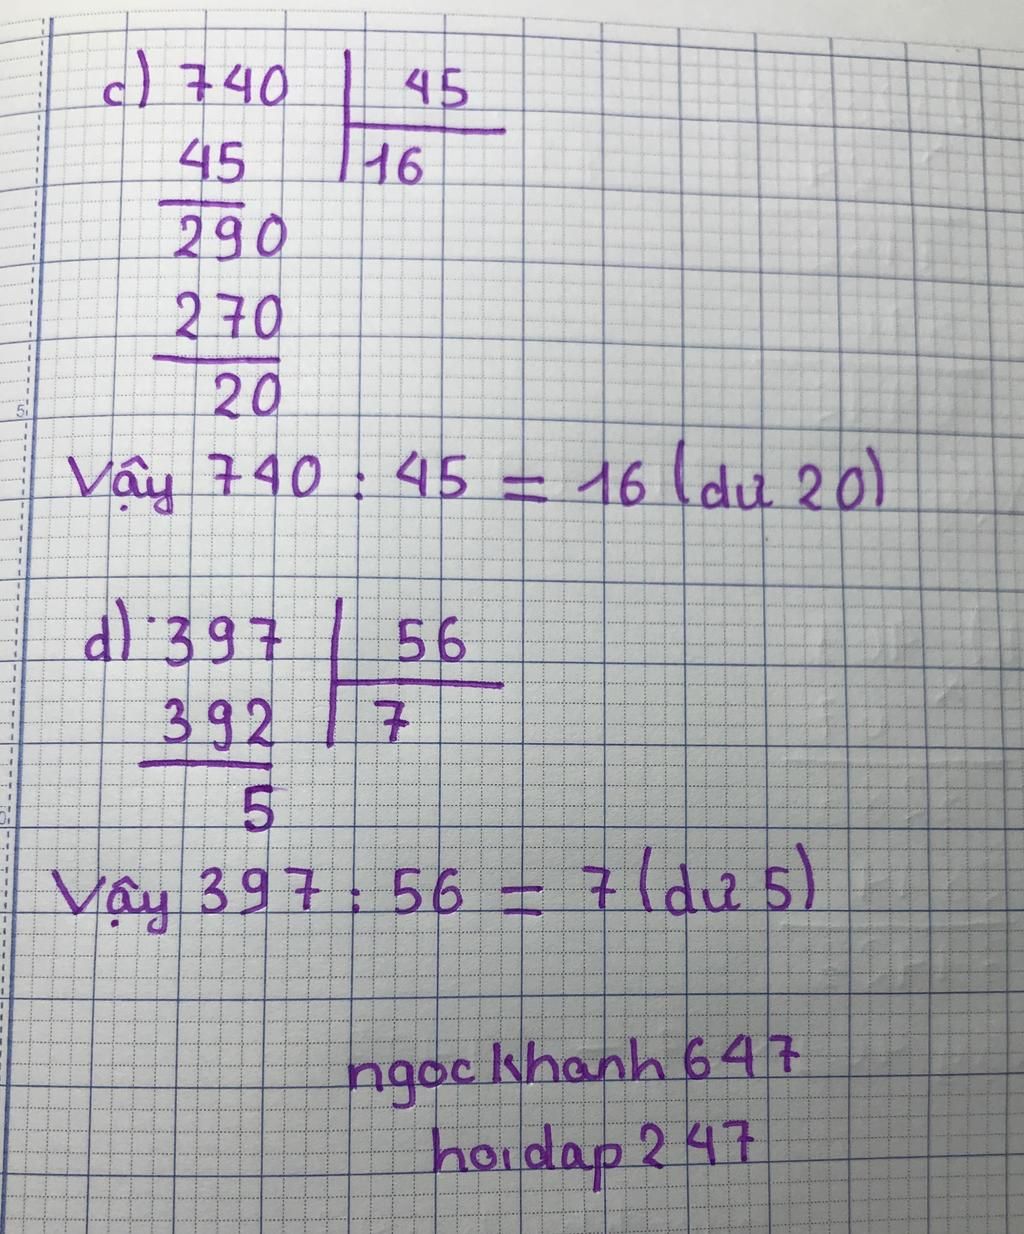 c) 740 | 45
45 | 16
290
270
20
Vậy 740 : 45 = 16 (dư 20)
d) 397 | 56
392 | 7
5
Vậy 397 : 56 = 7 (dư 5)
ngockhanh647
hoidap247